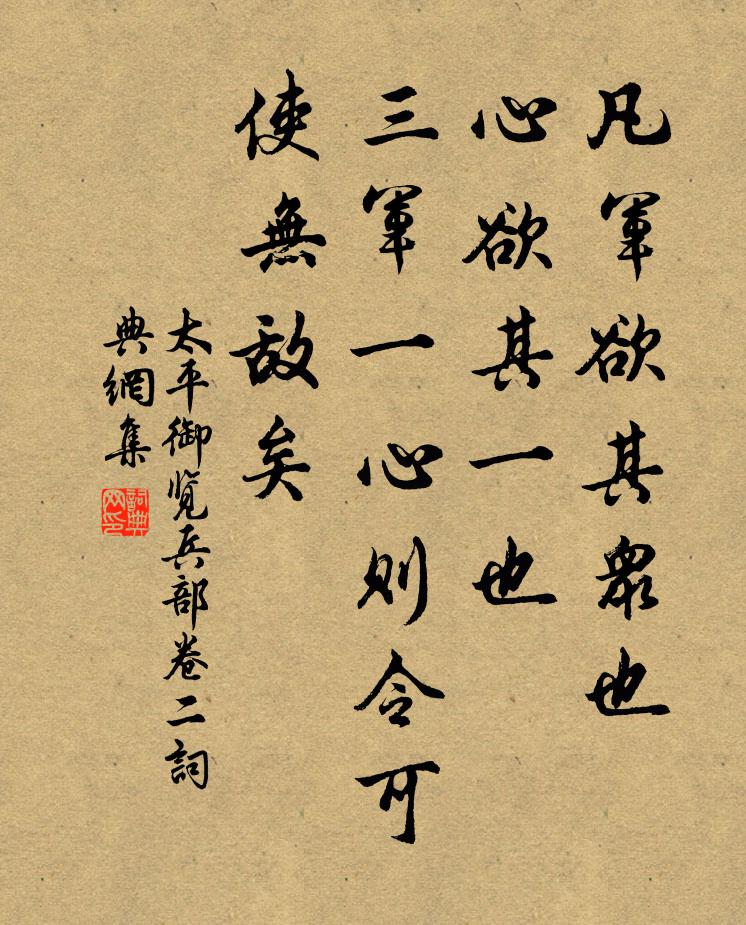 凡軍欲其眾也
心欲其一也
三軍一心則令可
使無敵矣
太平御览兵部卷二詞
典網集
詞典網印